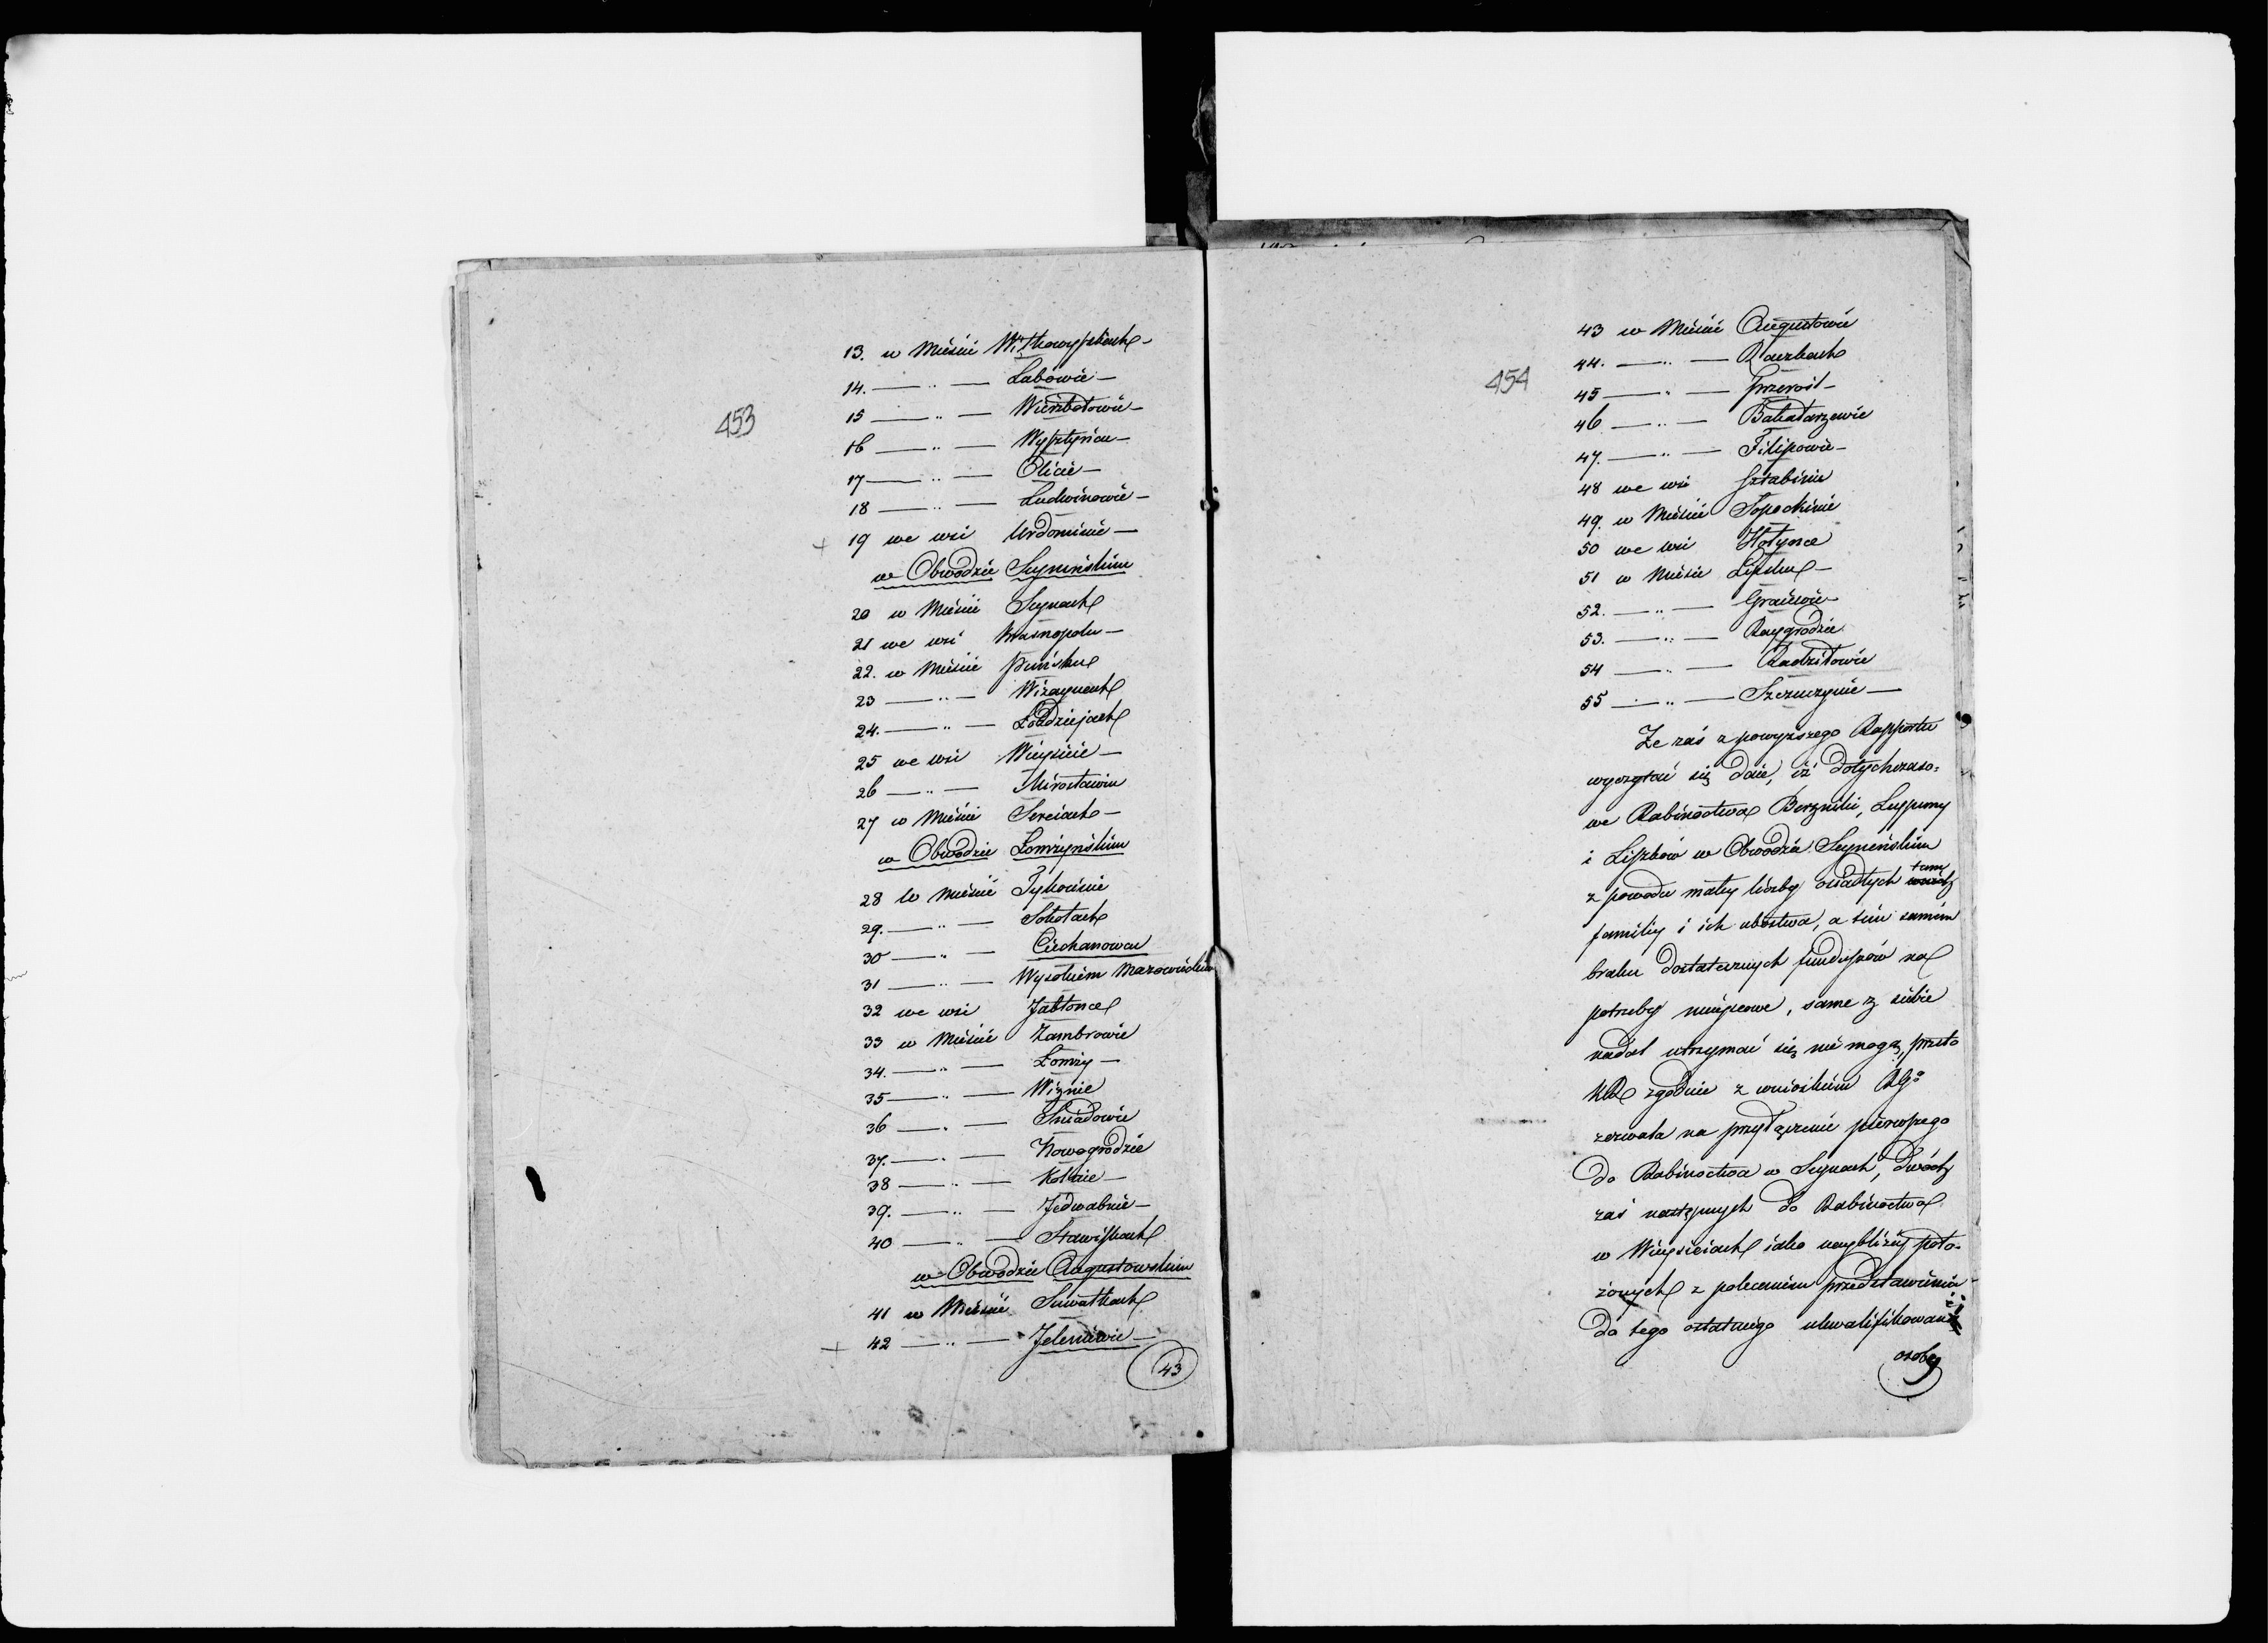 453
13. w Mieście Wiłkowyszkach –
14. — „ — Lubowie –
15 — „ — Wierzbołowie –
16 — „ — Wysztyńcu –
17 — „ — Olicie –
18 — „ — Ludwinowie –
+ 19 we wsi Urdominie –
w Obwodzie Seyneńskim
20 w Mieście Seynach
21 we wsi Krasnopolu –
22. w Mieście Puńsku
23 — „ — Wizaynach
24. — „ — Łoździejach
25 we wsi Wieysieie –
26 — „ — Mirosławiu
27 w Mieście Sereiach –
w Obwodzie Łomżyńskim
28 w Mieście Tykocinie
29. — „ — Sokołach
30 — „ — Ciechanowcu
31 — „ — Wysokiem Mazowieckim
32 we wsi Jabłonce
33 w Mieście Zambrowie
34. — „ — Łomży –
35 — „ — Wiznie
36 — „ — Sniadowie
37. — „ — Nowogrodzie
38 — „ — Kolnie –
39. — „ — Jedwabnie –
40 — „ — Stawiskach
w Obwodzie Augustowskim
41 w Mieście Suwałkach
+ 42 — „ — Jeleniewie –
43
454
43 w Mieście Augustowie
44. — „ — Raczkach
45 — „ — Przerośl –
46 — „ — Bakałarzewie
47. — „ — Filipowie –
48 we wsi Sztabinie
49. w Mieście Sopockinie
50 we wsi Hołynce
51 w Mieście Lipsku –
52. — „ — Graiewie
53. — „ — Raygrodzie
54 — „ — Radziłowie
55 — „ — Szczuczynie —
Że zaś z powyższego Rapportu
wyczytać się daie, iż dotychczaso=
we Rabinostwa Berzniki, Leypuny
i Liszkow w Obwodzie Seyneńskim
z powodu małey liczby osiadłych tam
familiy i ich ubóstwa, a tém samém
braku dostatecznych funduszów na
potrzeby mieyscowe, same z siebie
nadal utrzymać się nie mogą, przeto
KR zgodnie z wnioskiem RGo
zezwala na przyłączenie pierwszego
do Rabinostwa w Seynach, dwóch
zaś następnych do Rabinostwa
w Wieysieiach iako naybliżey poło-
żonych z poleceniem przedstawienia
do tego ostatniego ukwalifikowanéj
osoby